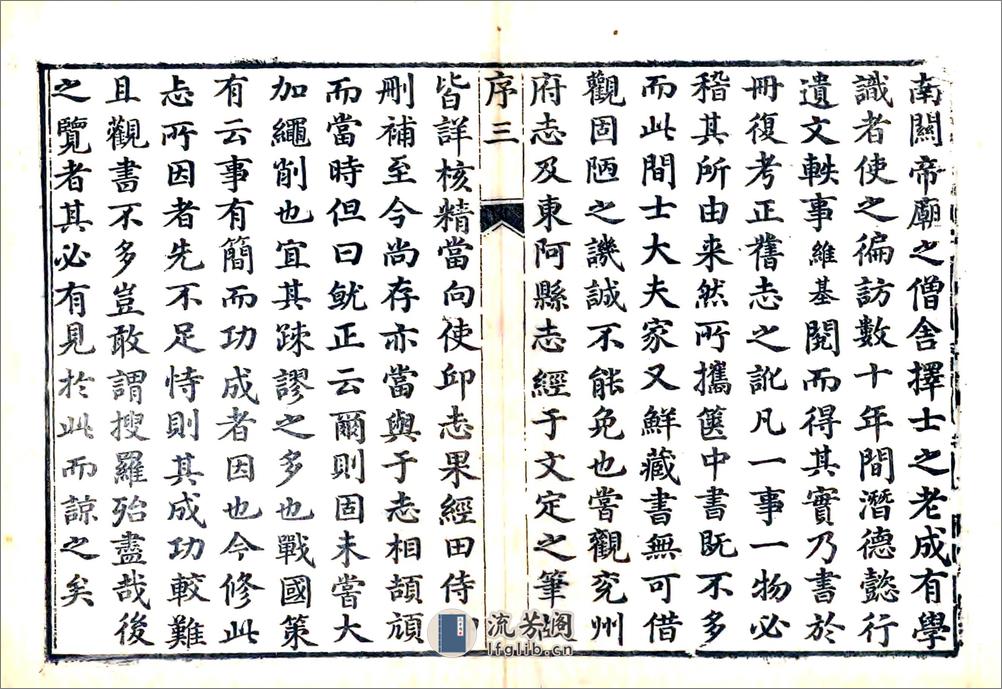 南關帝廟之僧舍擇士之老成有學
識者使之徧訪數十年間潛德懿行
遺文軼事維基閱而得其實乃書於
冊復考正舊志之訛凡一事一物必
稽其所由来然所攜篋中書既不多
而此間士大夫家又鮮藏書無可借
觀固陋之譏誠不能免也嘗觀兖州
府志及東阿縣志經于文定之筆
序三
皆詳核精當向使邱志果經田侍
刪補至今尚存亦當與于志相頡頏
而當時但曰就正云爾則固未嘗大
加繩削也宜其疎謬之多也戰國策
有云事有簡而功成者因也今修此
志所因者先不足恃則其成功較難
且觀書不多豈敢謂搜羅殆盡哉後
之覽者其必有見於此而諒之矣
流芳阁
lfglib.cn